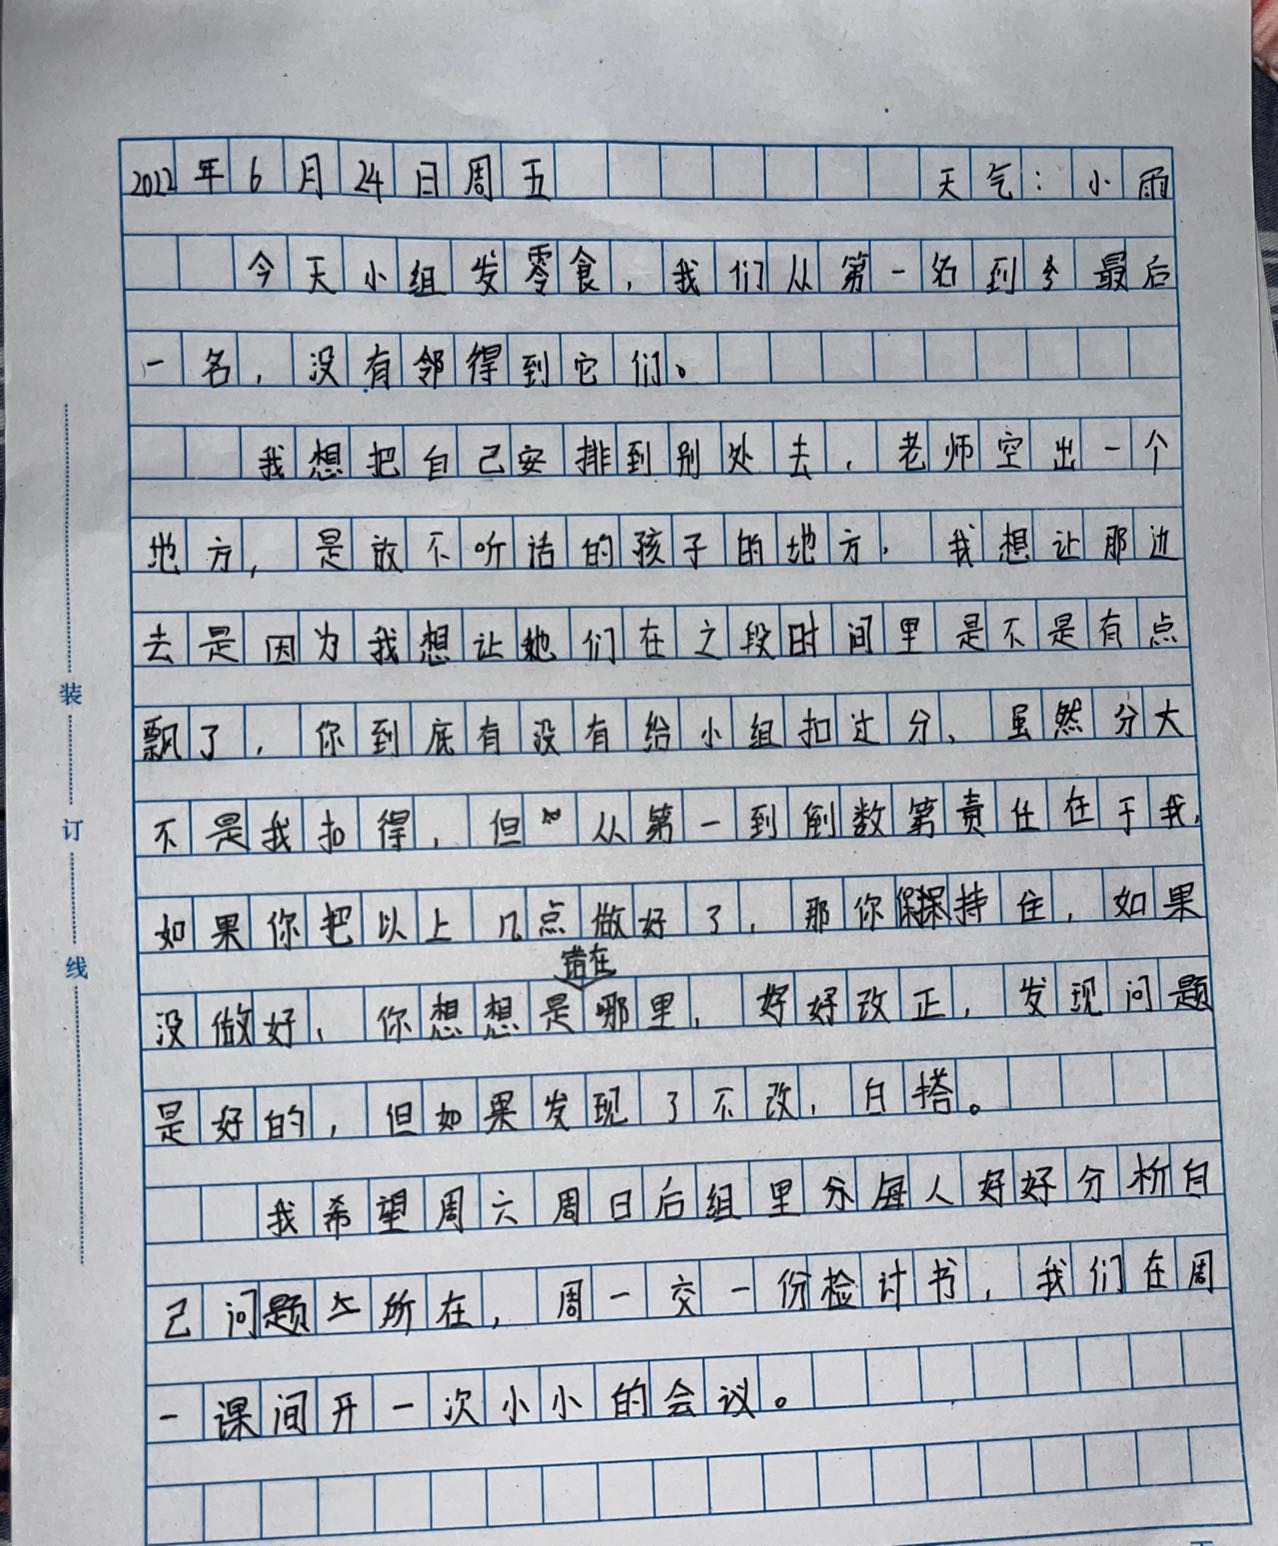 2022年6月24日周五 天气：小雨
今天小组发零食，我们从第一名到最后
一名，没有邻得到它们。
我想把自己安排到别处去，老师空出一个
地方，是放不听话的孩子的地方，我想让那边
去是因为我想让她们在之段时间里是不是有点
飘了，你到底有没有给小组扣过分、虽然分大
不是我扣得，但从第一到倒数第责任在于我，
如果你把以上几点做好了，那你保持住，如果
错在
没做好、你想想是哪里，好好改正，发现问题
是好的，但如果发现了不改，白搭。
我希望周六周日后组里每人好好分析自
己问题所在，周一交一份检讨书，我们在周
一课间开一次小小的会议。
装
订
线